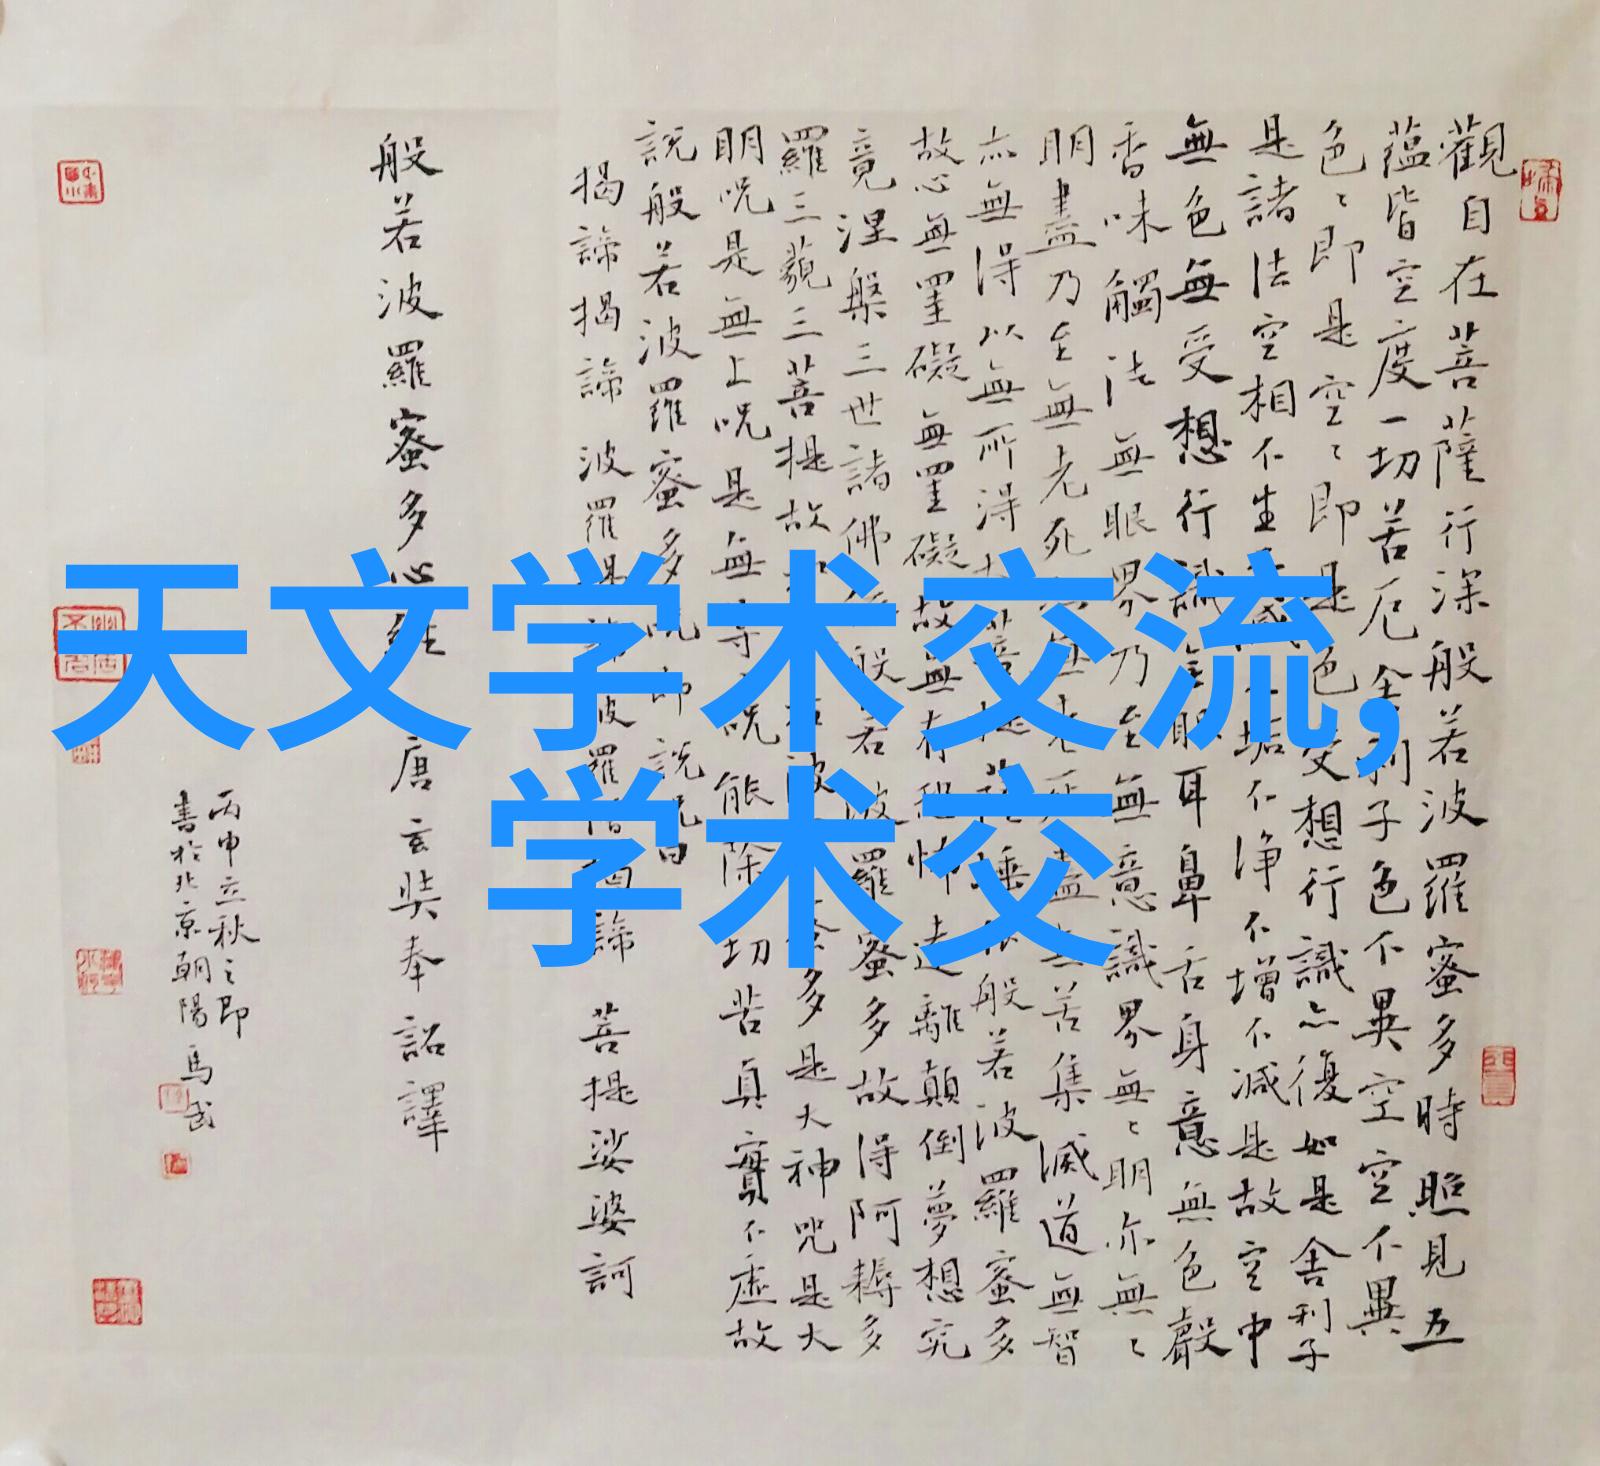 天文学术交流,
学术交
觀自在菩薩行深般若波羅蜜多時照見五
蘊皆空度一切苦厄舍利子色不異空空不異
色〻即是空〻即是色受想行識亦復如是舍利子
是諸法空相不生滅垢不净不增不減是故空中
無色無受想行識無眼耳鼻舌身意無色聲
香味觸法無眼界乃至無意識界無〻明亦無〻
明盡乃至無老死無老死盡無苦集滅道無智
亦無得以無所得故菩提薩埵依般若波羅蜜多
故心無罣礙無罣礙故無有恐怖遠離顛倒夢想究
竟涅槃三世諸佛依般若波羅蜜多故得阿耨多
羅三藐三菩提故若波蜜多是大神咒是大
明呪是無上呪是無等呪能除切苦真實不虛故
說般若波羅蜜多呪即說呪曰
揭諦揭諦 波羅揭諦 波羅僧揭諦 菩提娑婆訶
般若波羅蜜多心經 唐玄奘奉詔譯
丙申立秋之即
書於北京朝陽馬武